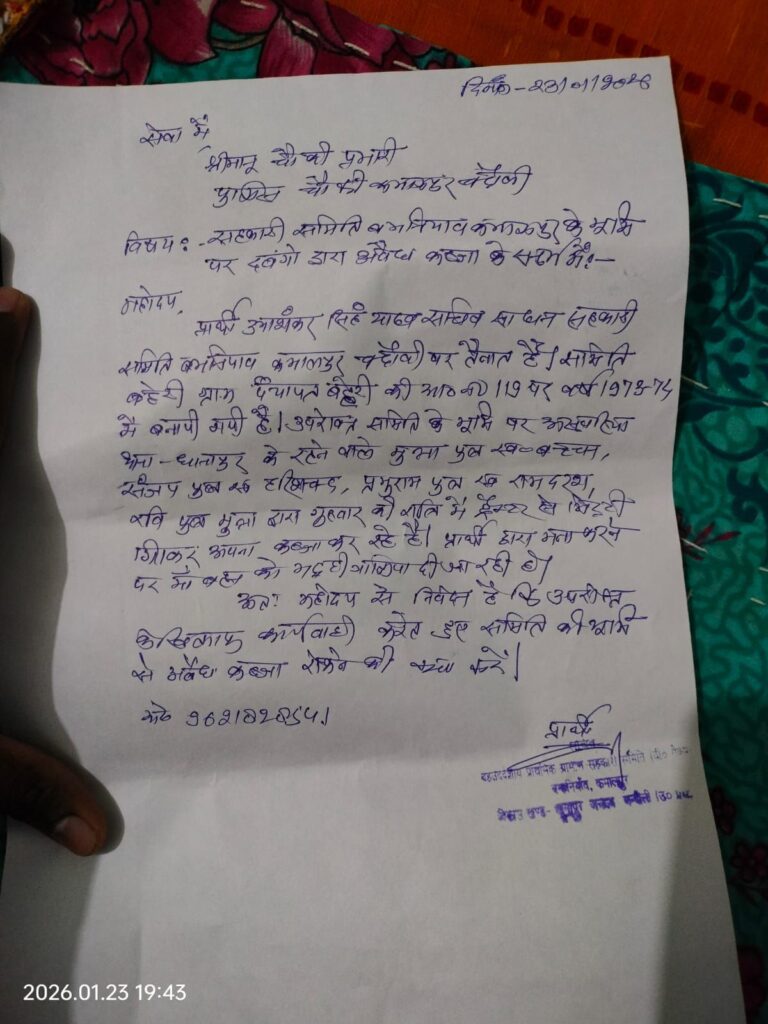 दिनांक - 23/01/2026
सेवा में
श्रीमान् चौकी प्रभारी
पुलिस चौकी कमालपुर चंदौली
विषय:- सहकारी समिति बभनियाव कमालपुर के भूमि
पर दबंगो द्वारा अवैध कब्जा के सम्बन्ध में:-
महोदय,
प्रार्थी उमाशंकर सिंह यादव सचिव साधन सहकारी
समिति बभनियाव कमालपुर चंदौली पर तैनात हैं। समिति
ग्राम पंचायत की आ०न० 119 पर वर्ष 1973-74
मे बनायी गयी है। उपरोक्त समिति के भूमि पर
थाना-धानापुर के रहने वाले मुन्ना पुत्र स्व०
संजय पुत्र स्व हरिश्चन्द, प्रभुराम पुत्र स्व रामदरश,
रवि पुत्र मुन्ना द्वारा गुरुवार की रात्रि में ट्रैक्टर से मिट्टी
गिराकर अपना कब्जा कर रहे है। प्रार्थी द्वारा मना करने
पर माँ बहन की भद्दी गालिया दी जा रही है।
अतः महोदय से निवेदन है कि उपरोक्त
के खिलाफ कार्यवाही करते हुए समिति की भूमि
से अवैध कब्जा रोकने की कृपा करें।
प्रार्थी
बहुउद्देशीय प्राथमिक ग्रामीण सहकारी समिति लि०
बभनियाँव, कमालपुर
विकास खण्ड- जनपद चन्दौली
2026.01.23 19:43